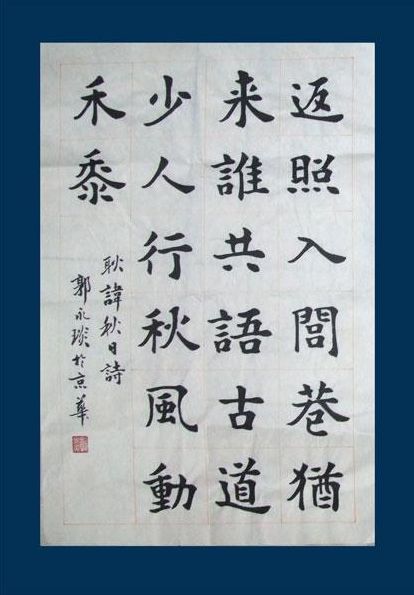 返照入閭巷猶
来誰共語古道
少人行秋風動
禾黍
耿諱秋日詩
郭永琰於京華